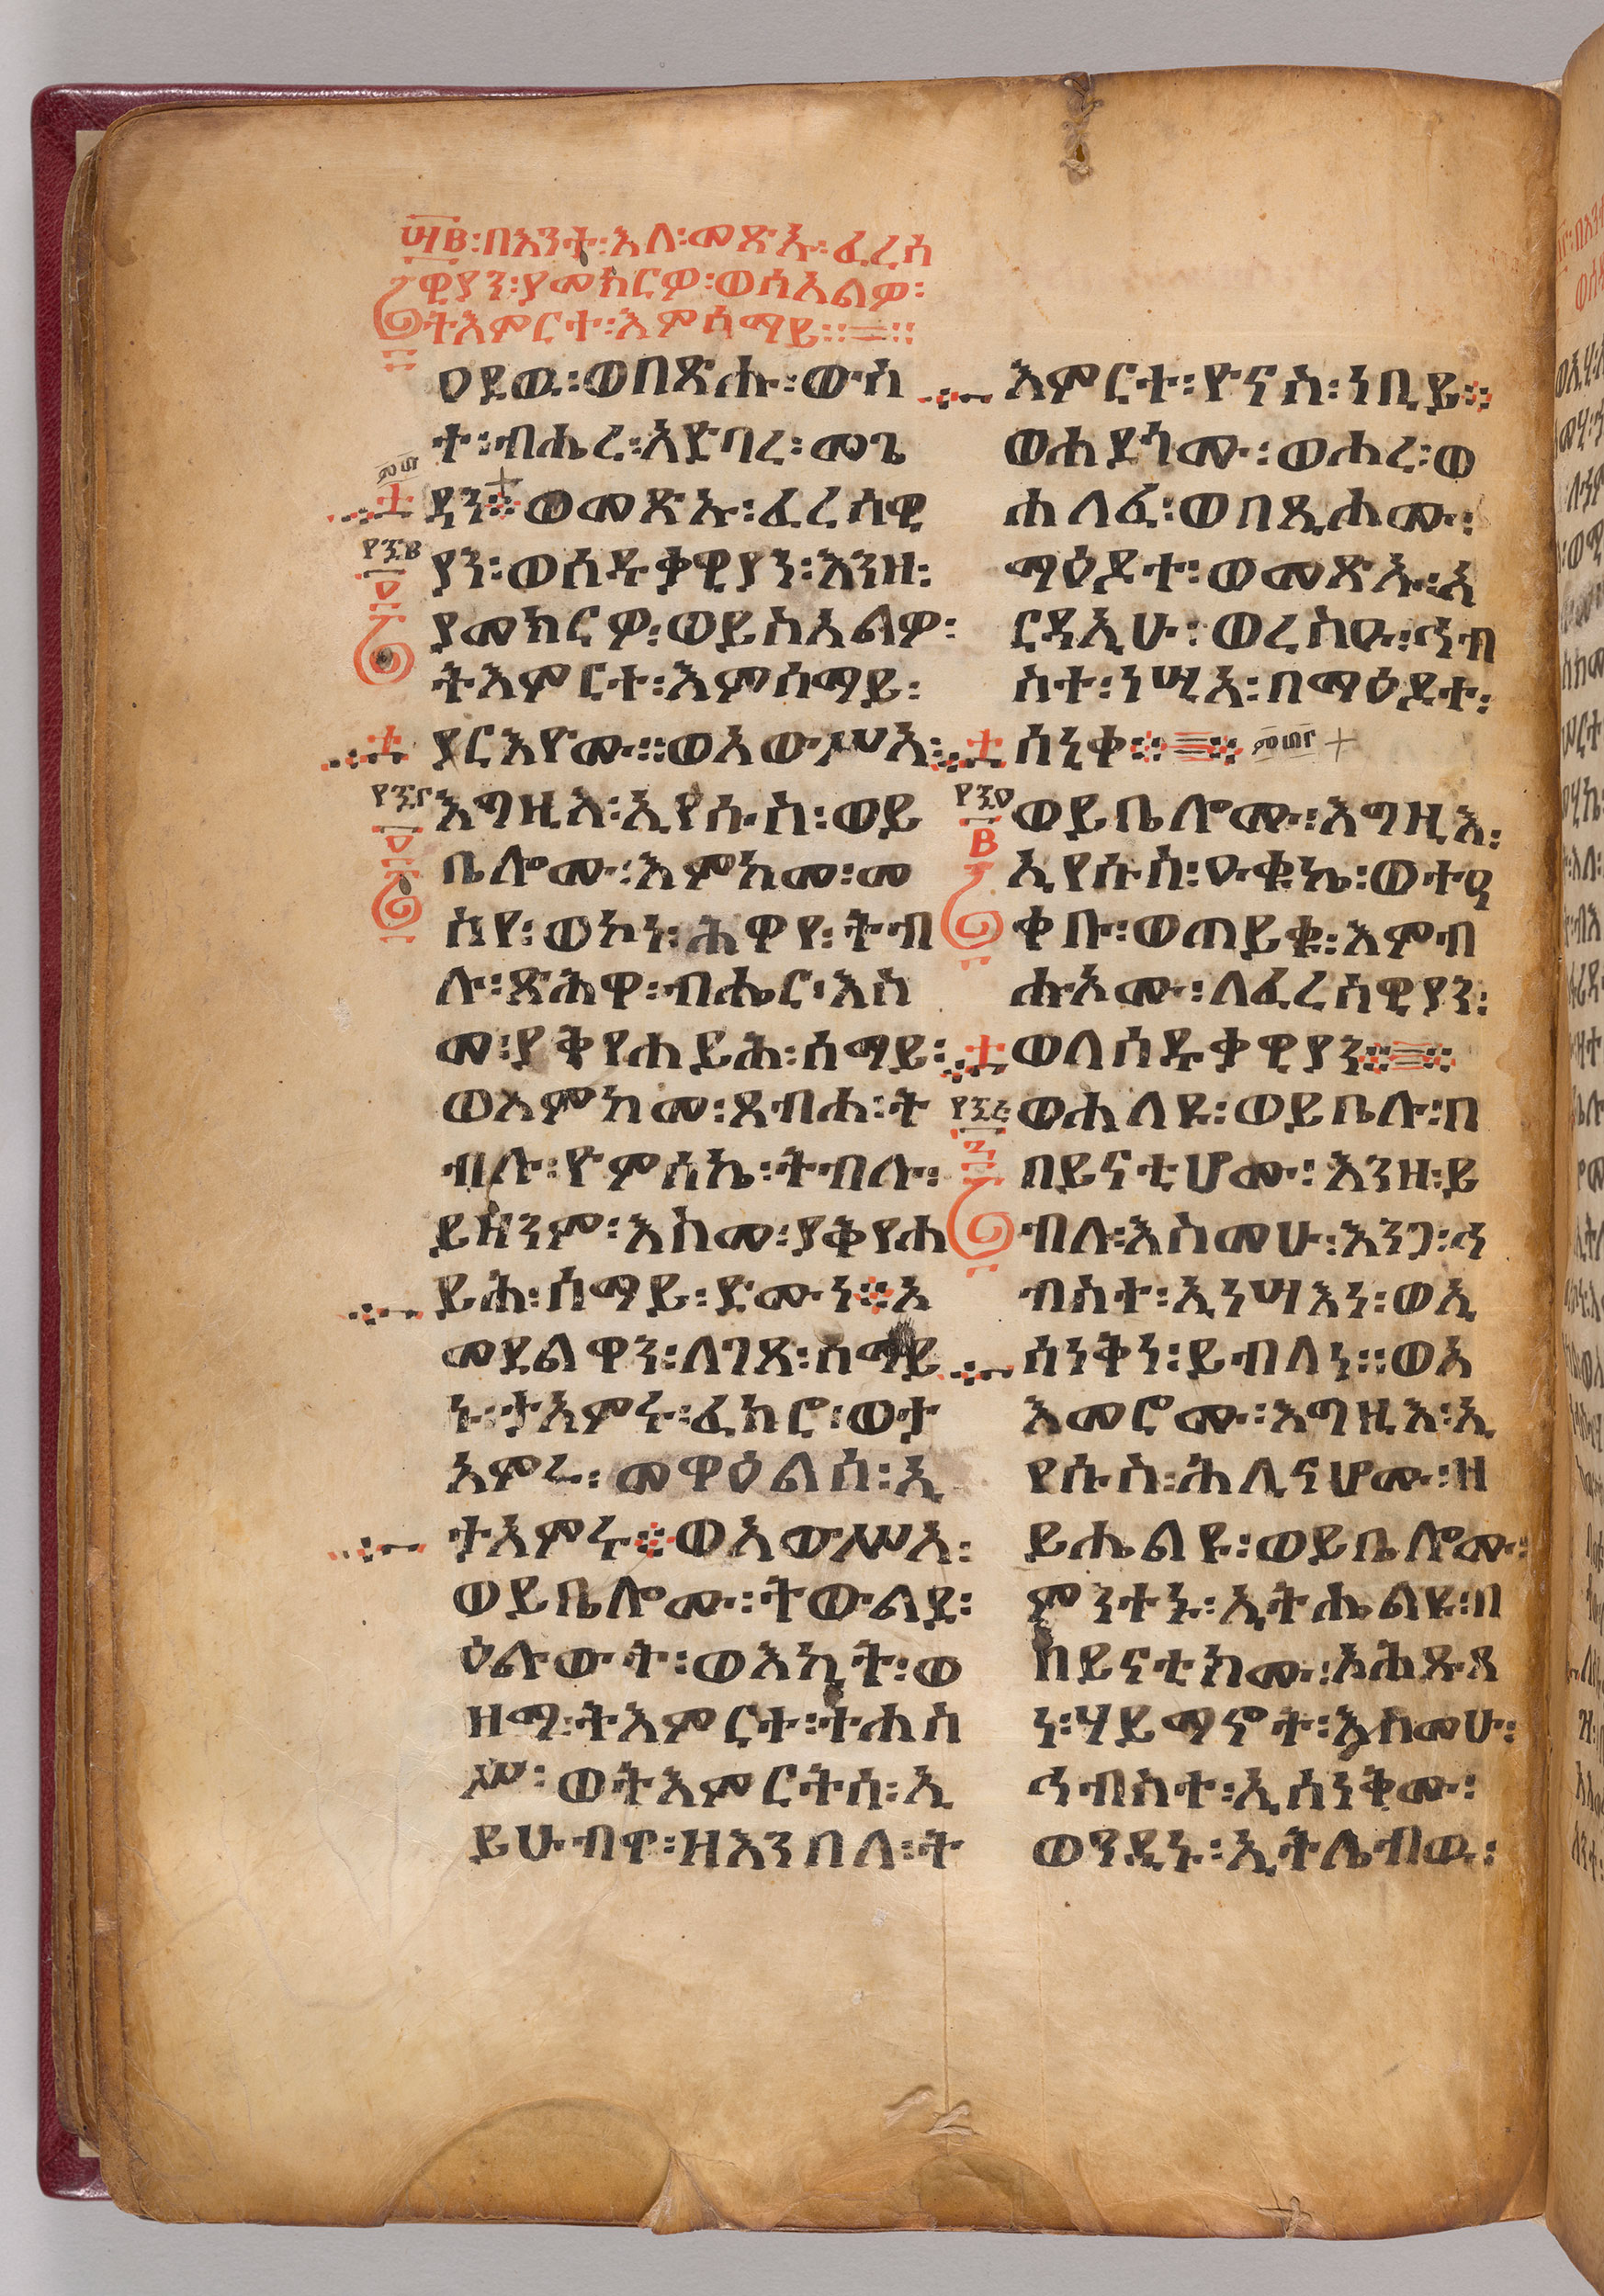 ፴፪፡በእንተ፡እለ፡መጽኡ፡ፈሪስ
ዊያን፡ያመክርዎ፡ወሰአልዎ፡
ትእምርተ፡እምሰማይ።
ዐደወ፡ወበጽሐ፡ውስ
ተ፡ብሔረ፡አድባረ፡መጌ
ዳን።ወመጽኡ፡ፈሪሳዊ
ያን፡ወሰዱቃዊያን፡እንዘ፡
ያመክርዎ፡ወይስእልዎ፡
ትእምርተ፡እምሰማይ፡
ያርእዮሙ።ወአውሥአ፡
እግዚእ፡ኢየሱስ፡ወይ
ቤሎሙ፡እምከመ፡መ
ስየ፡ወኮነ፡ሕዋየ፡ትብ
ሉ፡ጽሕዋ፡ብሔር፡እስ
መ፡ያቅየሐይሕ፡ሰማይ፡
ወእምከመ፡ጸብሐ፡ት
ብሉ፡ዮምሰኬ፡ትብሉ፡
ይዘንም፡እስመ፡ያቅየሐ
ይሕ፡ሰማይ፡ድሙን።አ
መደልዋን፡ለገጸ፡ሰማይ
ኑ፡ታአምሩ፡ፈክሮ፡ወታ
አምሩ፡መዋዕልሰ፡ኢ
ታአምሩ።ወአውሥአ፡
ወይቤሎሙ፡ትውልድ፡
ዕሉውት፡ወእኪት፡ወ
ዘማ፡ትእምርተ፡ተሐስ
ሥ፡ወትእምርትሰ፡ኢ
ይሁብዋ፡ዘእንበለ፡ት
እምርተ፡ዮናስ፡ነቢይ።
ወሐደጎሙ፡ወሖረ፡ወ
ሐለፈ፡ወበጺሖሙ፡
ማዕዶተ፡ወመጽኡ፡አ
ርዳኢሁ፡ወረስዑ፡ኅብ
ስተ፡ነሢአ፡በማዕዶተ፡
ሰኒቀ።
ወይቤሎሙ፡እግዚእ፡
ኢየሱስ፡ዑቁኬ፡ወተዐ
ቀቡ፡ወጠይቁ፡እምብ
ሑአሙ፡ለፈሪሳዊያን፡
ወለሰዱቃዊያን።
ወሐለዩ፡ወይቤሉ፡በ
በይናቲሆሙ፡እንዘ፡ይ
ብሉ፡እስመሁ፡እንጋ፡ኅ
ብስተ፡ኢነሣእነ፡ወኢ
ሰነቅነ፡ይብለነ።ወአ
እመሮሙ፡እግዚእ፡ኢ
የሱስ፡ሕሊናሆሙ፡ዘ
ይሔልዩ፡ወይቤሎሙ፡
ምንተኑ፡ኢትሔልዩ፡በ
በይናቲክሙ፡አሕጹጻ
ነ፡ሃይማኖት፡እስመሁ፡
ኅብስተ፡ኢሰነቅሙ፡
ወዓዲኑ፡ኢትሌብዉ፡